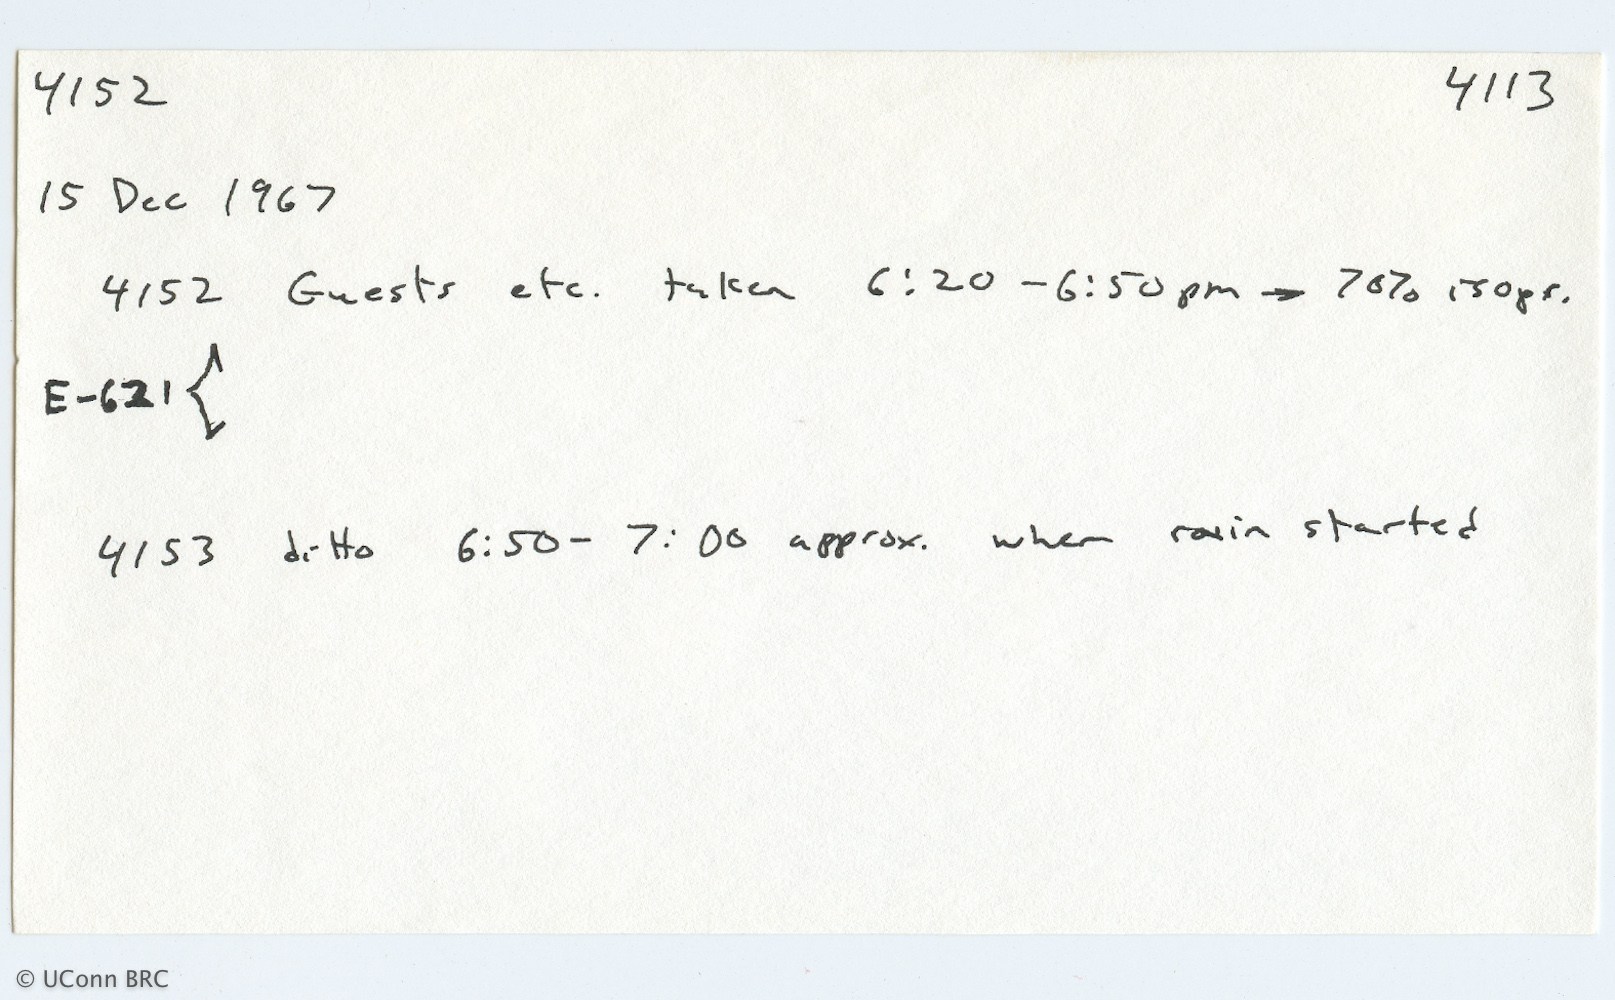 4152 4113
15 Dec 1967
4152 Guests etc. taken 6:20 - 6:50 pm → 70% isopr.
E-621 {
4153 ditto 6:50 - 7:00 approx. when rain started
© UConn BRC